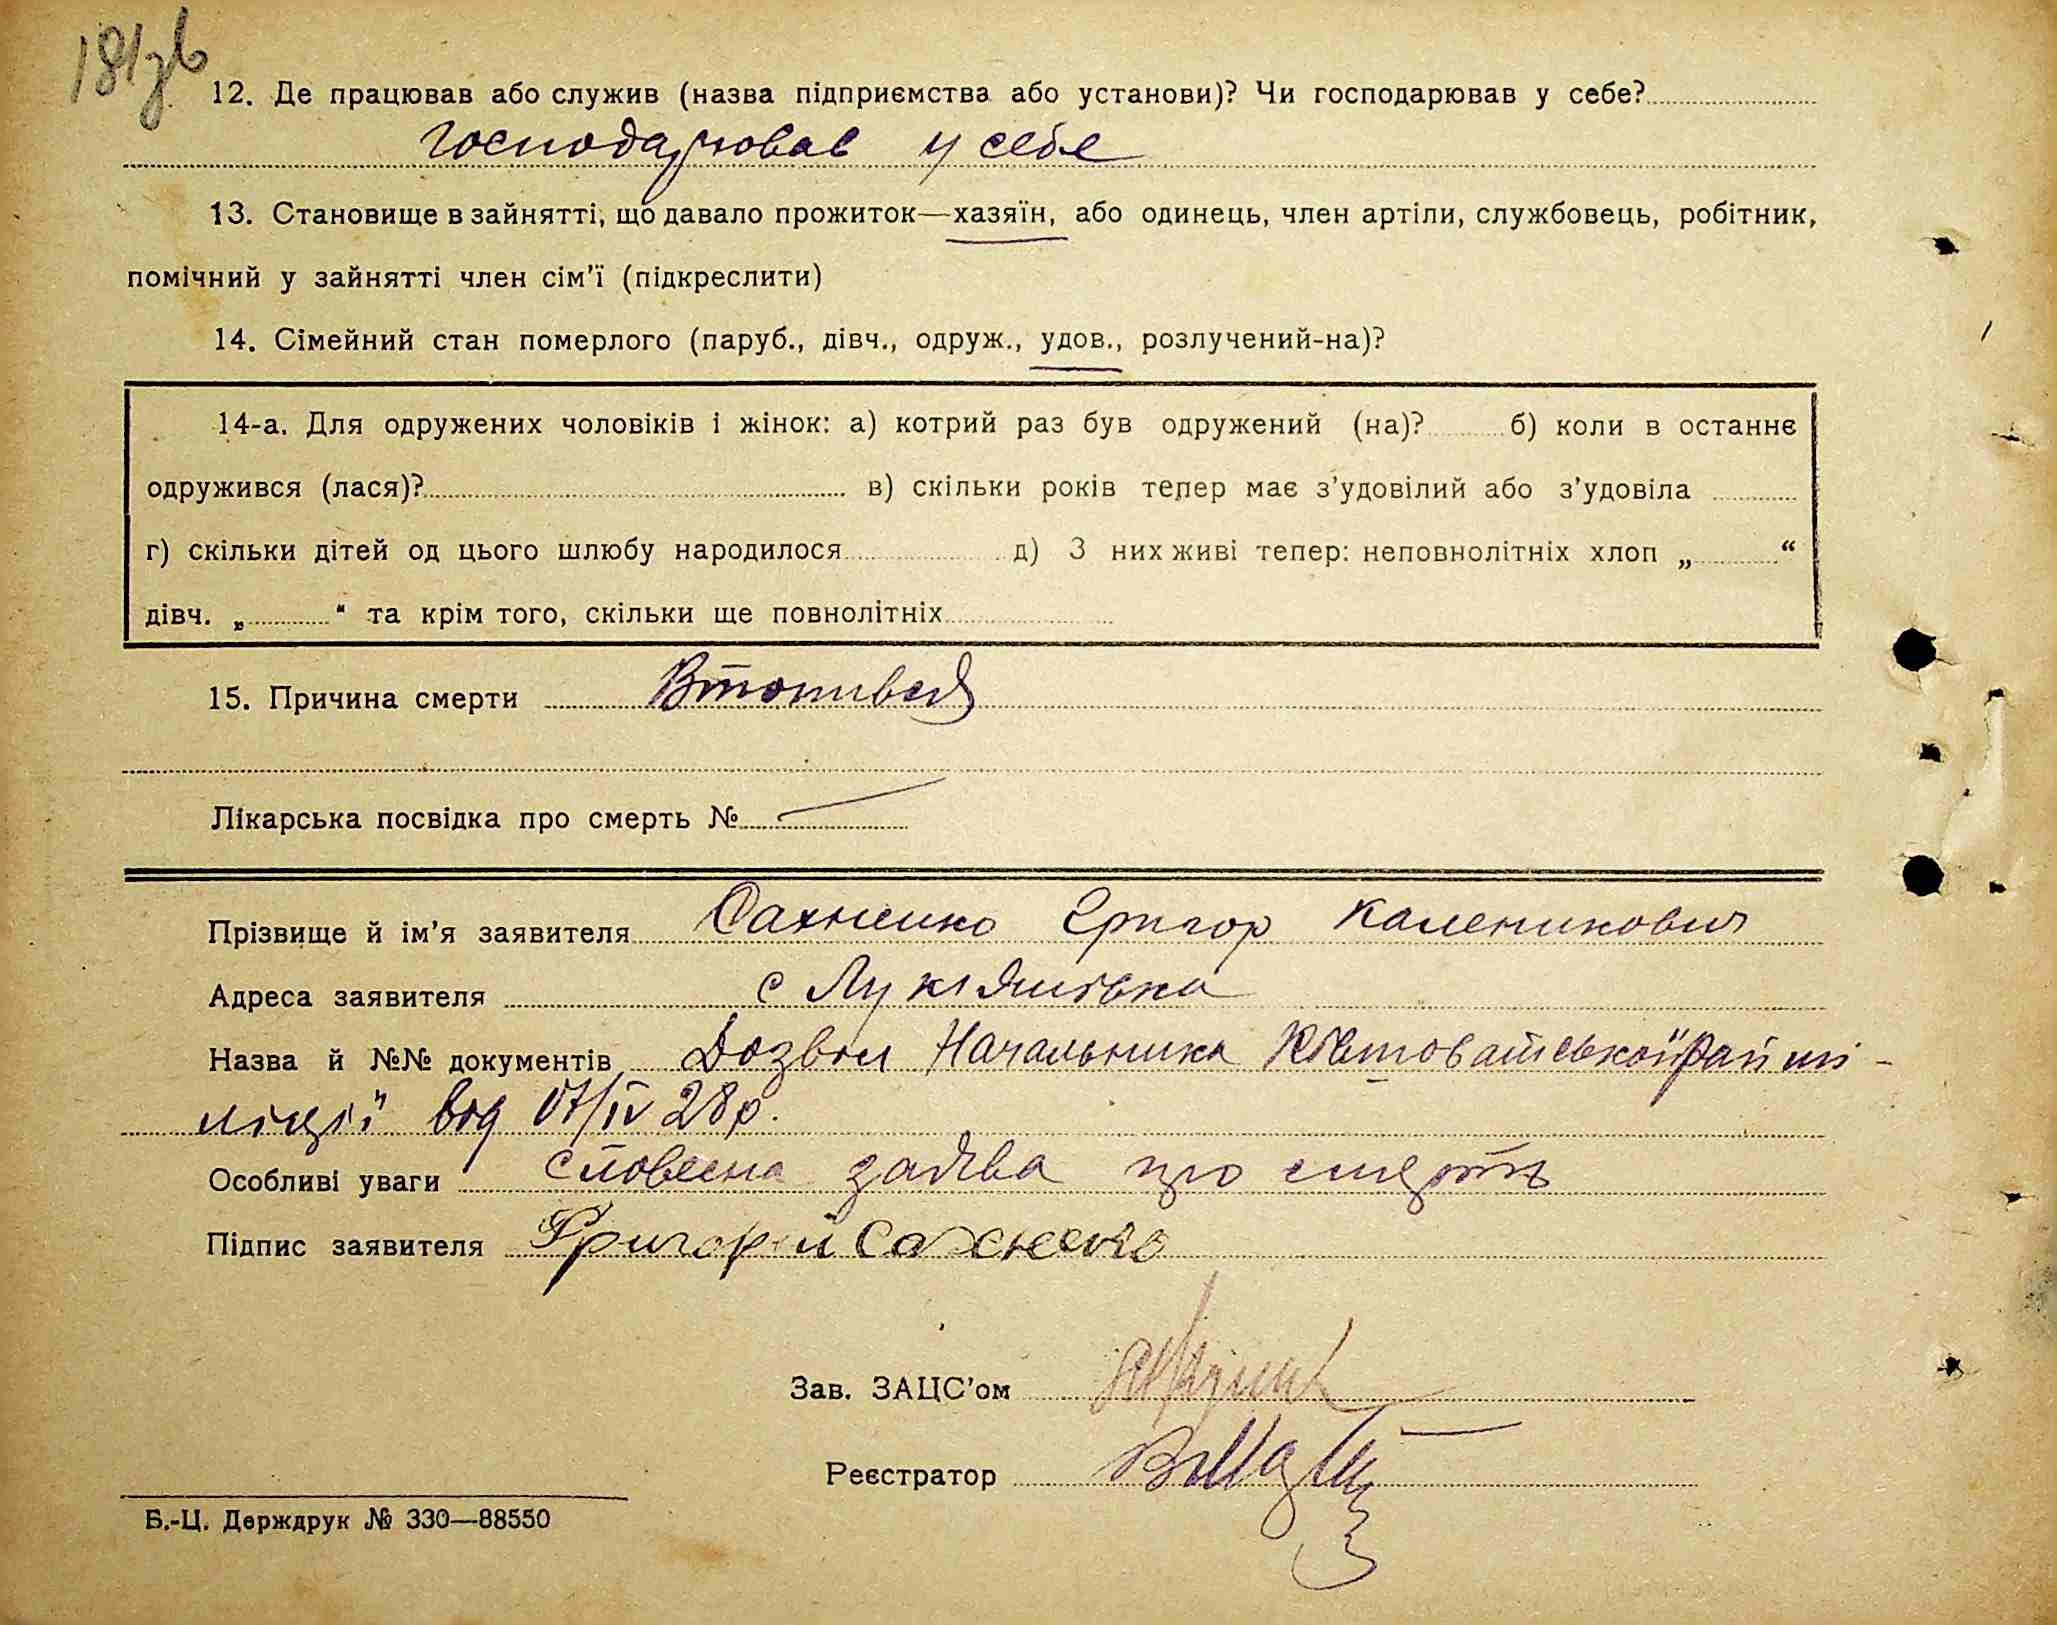 181зв
12. Де працював або служив (назва підприємства або установи)? Чи господарював у себе?
господарював у себе
13. Становище в зайнятті, що давало прожиток—хазяїн, або одинець, член артіли, службовець, робітник,
помічний у зайнятті член сім'ї (підкреслити)
14. Сімейний стан померлого (паруб., дівч., одруж., удов., розлучений-на)?
14-а. Для одружених чоловіків і жінок: а) котрий раз був одружений (на)? б) коли в останнє
одружився (лася)? в) скільки років тепер має з'удовілий або з'удовіла
г) скільки дітей од цього шлюбу народилося д) З них живі тепер: неповнолітніх хлоп „ “
дівч. „ “ та крім того, скільки ще повнолітніх
15. Причина смерти Втопився
Лікарська посвідка про смерть №
Прізвище й ім'я заявителя Сахненко Григор Каленикович
Адреса заявителя с Лукіянівка
Назва й №№ документів Дозвіл Начальника Ківшоватської Раймі-
ліції від 07/IV 28р.
Особливі уваги словесна заява про смерть
Підпис заявителя Григорій Сахненко
Зав. ЗАЦС'ом
Реєстратор
Б.-Ц. Держдрук № 330—88550